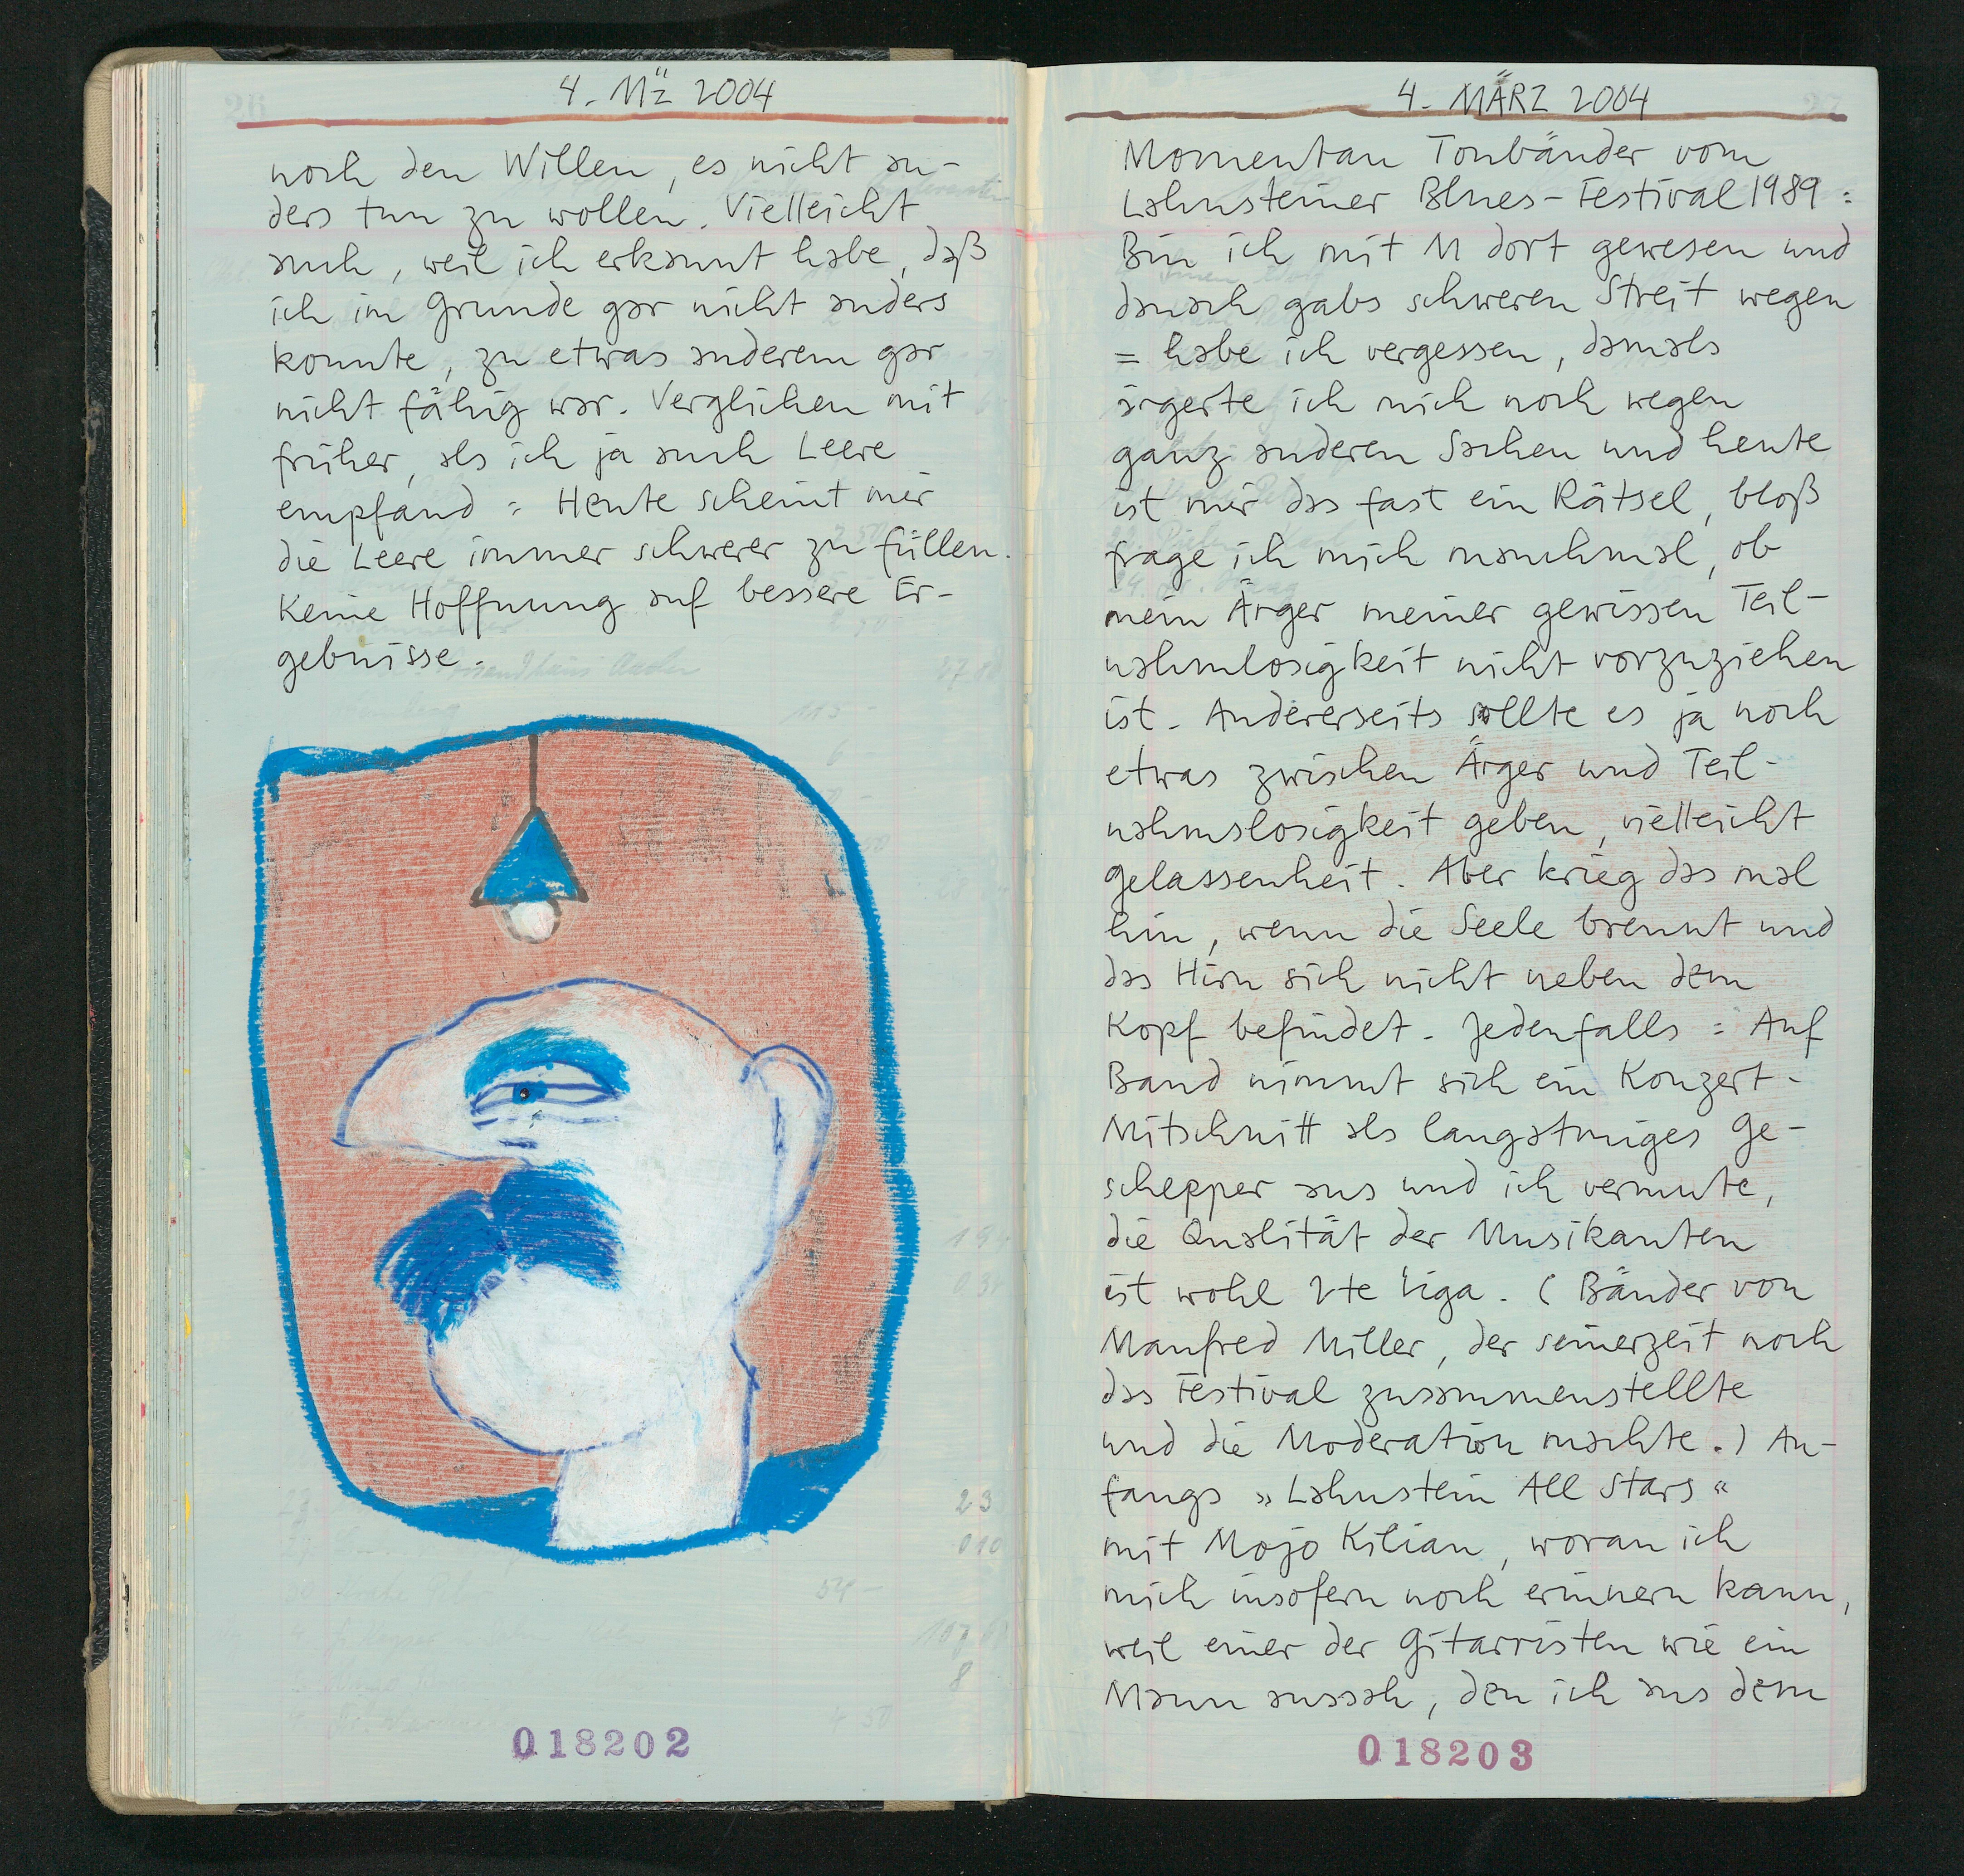 4. Mz̈ 2004
noch den Willen, es nicht an-
ders tun zu wollen. Vielleicht
auch, weil ich erkannt habe, daß
ich im Grunde gar nicht anders
konnte, zu etwas anderem gar
nicht fähig war. Verglichen mit
früher, als ich ja auch Leere
empfand: Heute scheint mir
die Leere immer schwerer zu füllen.
Keine Hoffnung auf bessere Er-
gebnisse.
018202
4. MÄRZ 2004
Momentan Tonbänder vom
Lahnsteiner Blues-Festival 1989:
Bin ich mit M dort gewesen und
danach gabs schweren Streit wegen
= habe ich vergessen, damals
ärgerte ich mich noch wegen
ganz anderen Sachen und heute
ist mir das fast ein Rätsel, bloß
frage ich mich manchmal, ob
mein Ärger meiner gewissen Teil-
nahmlosigkeit nicht vorzuziehen
ist. Andererseits sollte es ja noch
etwas zwischen Ärger und Teil-
nahmslosigkeit geben, vielleicht
Gelassenheit. Aber krieg das mal
hin, wenn die Seele brennt und
das Hirn sich nicht neben dem
Kopf befindet. Jedenfalls: Auf
Band nimmt sich ein Konzert-
Mitschnitt als langatmiges Ge-
schepper aus und ich vermute,
die Qualität der Musikanten
ist wohl 2te Liga. (Bänder von
Manfred Miller, der seinerzeit noch
das Festival zusammenstellte
und die Moderation machte.) An-
fangs »Lahnstein All Stars«
mit Mojo Kilian, woran ich
mich insofern noch erinnern kann,
weil einer der Gitarristen wie ein
Mann aussah, den ich aus dem
018203